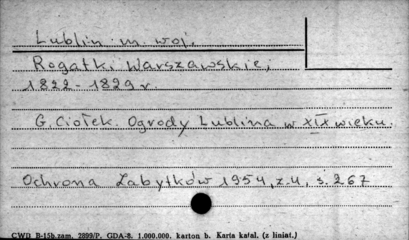 Lublin m. woj.
Rogatki Warszawskie,
1822-1829 r.
G. Ciołek. Ogrody Lublina w XIX wieku.
Ochrona Zabytków 1954, z.4, s. 267
CWD B-15b.zam. 2899/P. GDA-8. 1.000.000. karton b. Karta katal. (z liniat.)